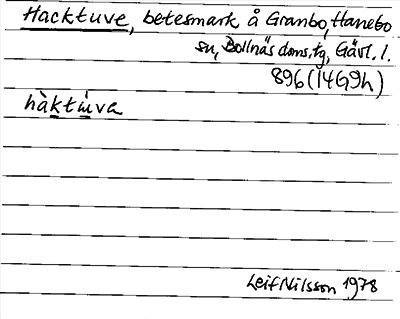 Hacktuve, betesmark å Granbo, Hanebo
sn, Bollnäs doms.tg, Gävl. l.
896 (14G9h)
hàktu̇va
Leif Nilsson 1978